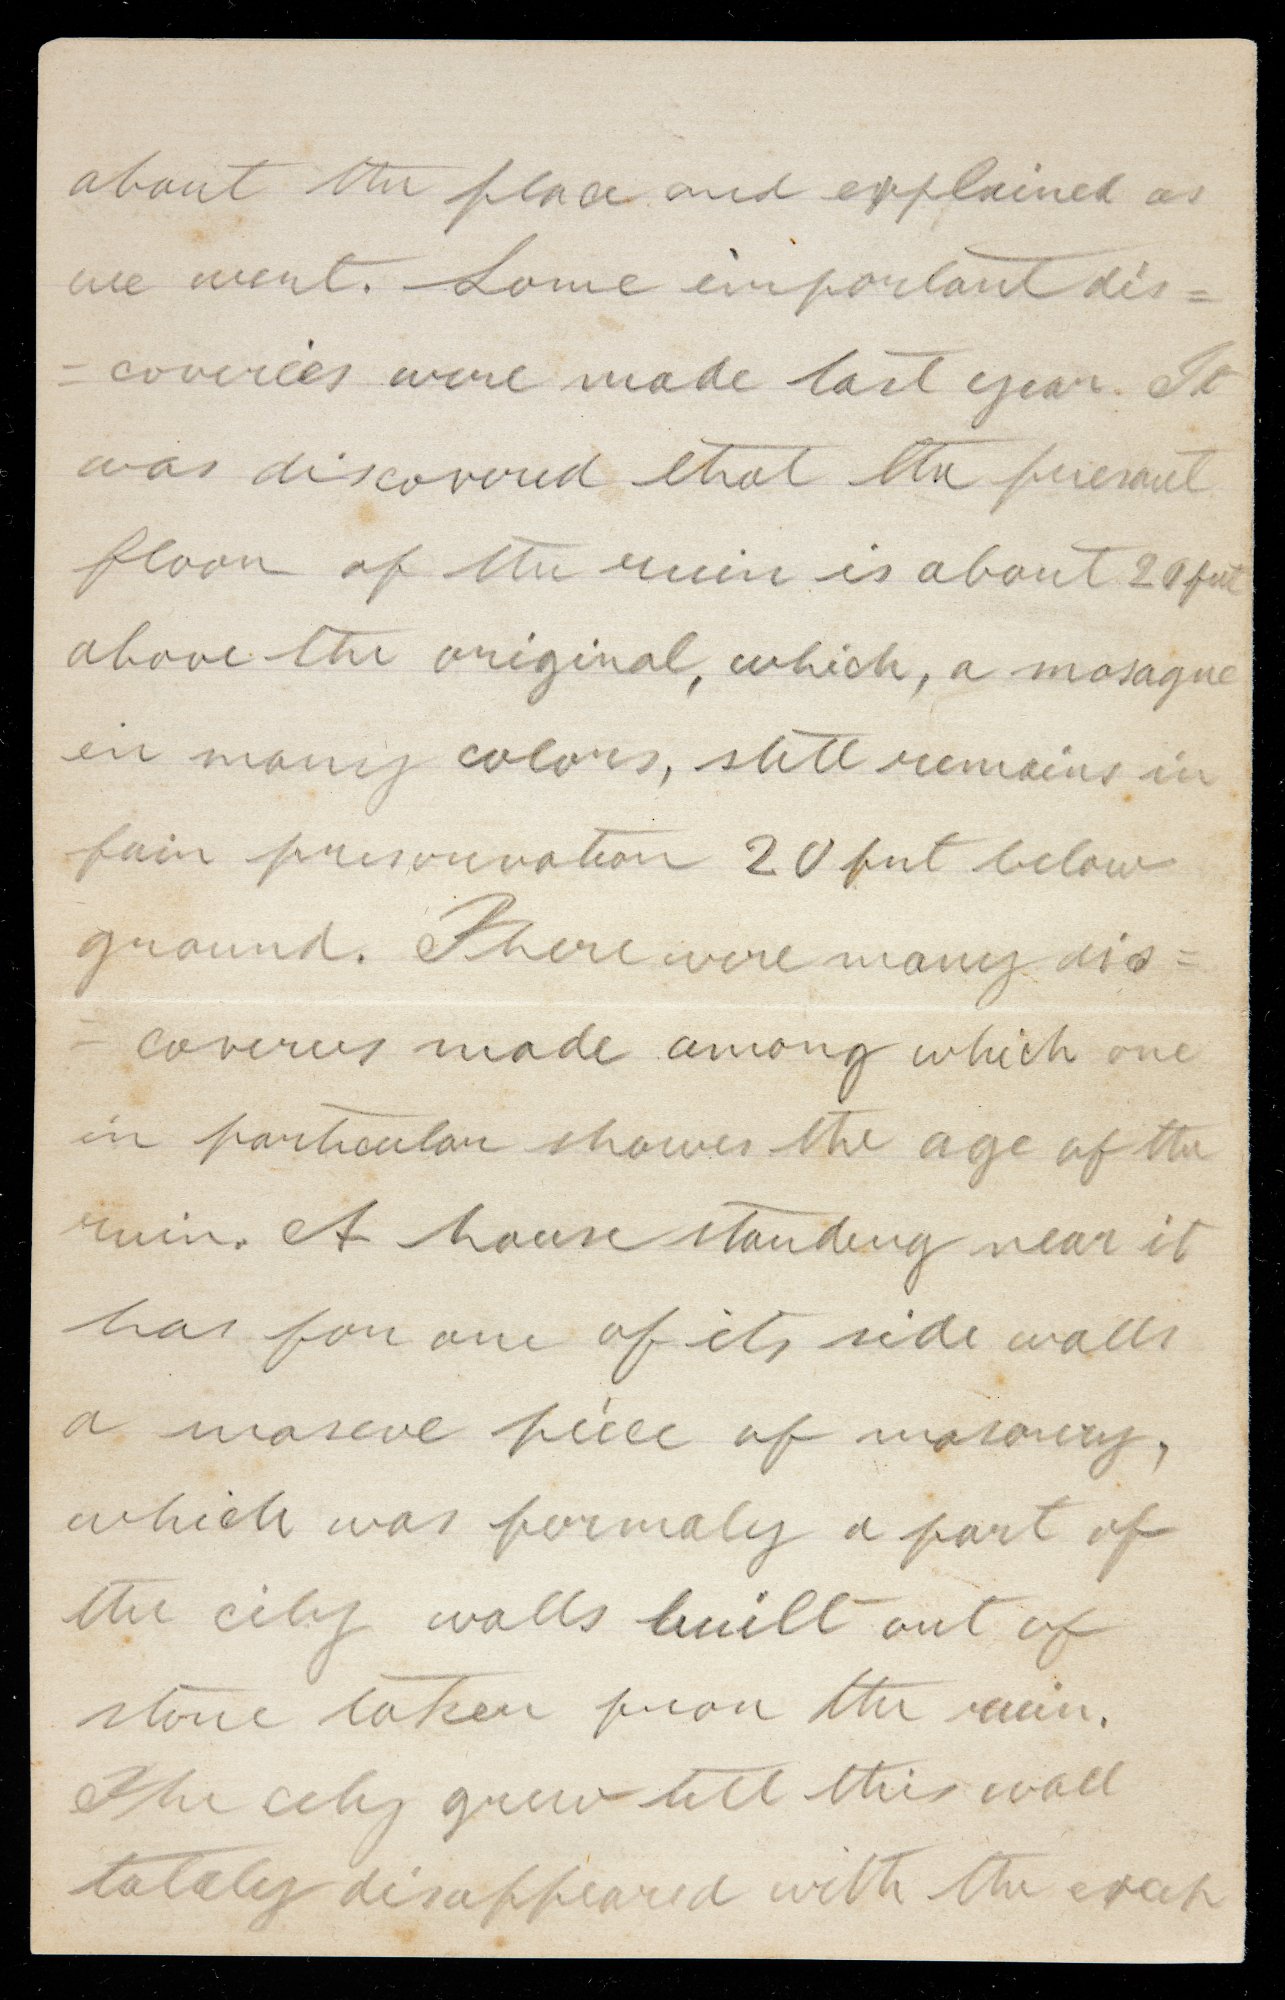 about the place and explained as
we went. Some important dis=
=coveries were made last year. It
was discovered that the present
floor of the ruin is about 20 feet
above the original, which, a mosaque
in many colors, still remains in
fair preservation 20 feet below
ground. There were many dis=
=coveries made among which one
in particular shows the age of the
ruin. A house standing near it
has for one of its side walls
a maseve piece of masonery,
which was formaly a part of
the city walls built out of
stone taken from the ruin.
The city grew till this wall
totaly disappeared with the excep